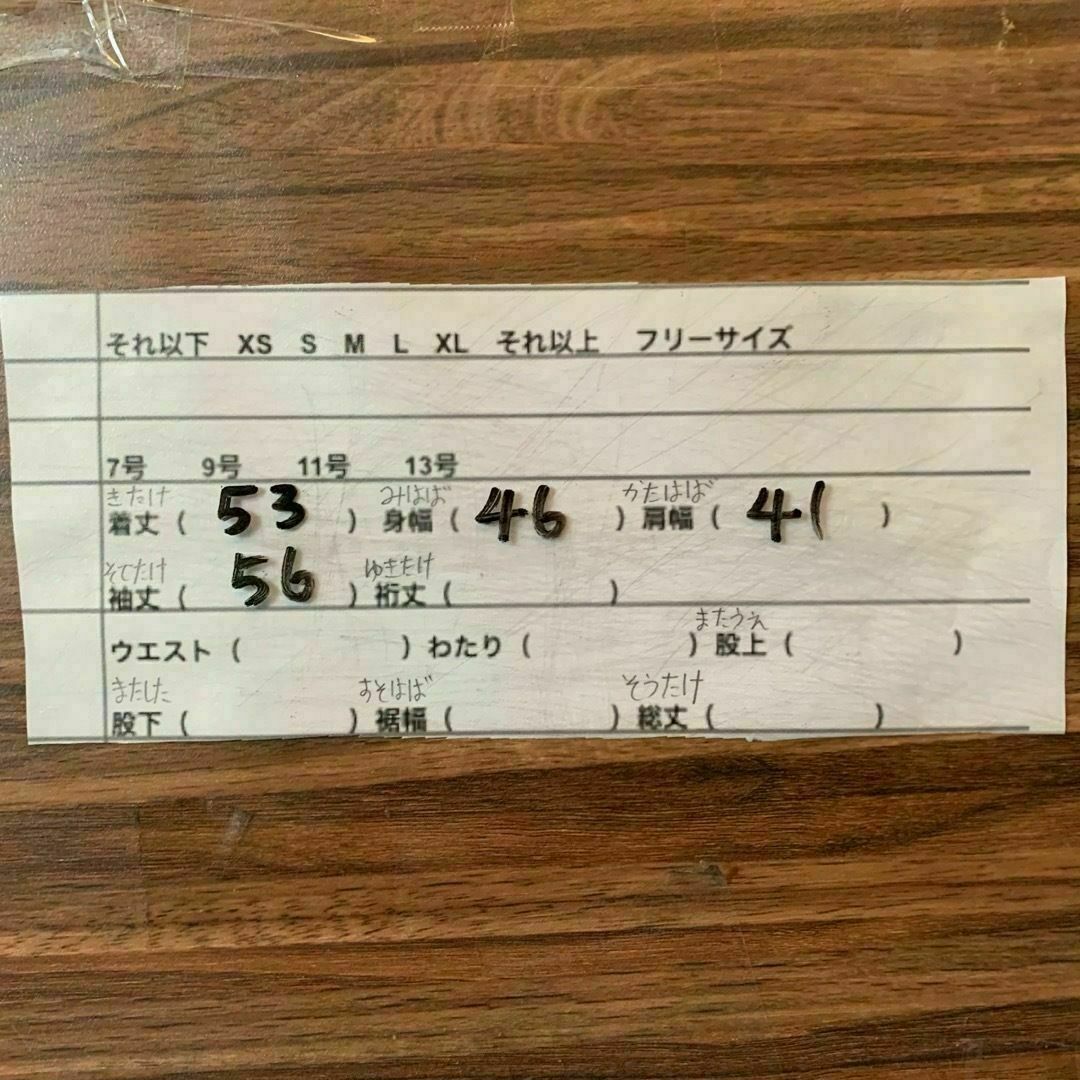 それ以下 XS S M L XL それ以上 フリーサイズ
7号 9号 11号 13号
きたけ みはば かたはば
着丈 ( 53 ) 身幅 ( 46 ) 肩幅 ( 41 )
そでたけ ゆきたけ
袖丈 ( 56 ) 裄丈 ( )
またうえ
ウエスト ( ) わたり ( ) 股上 ( )
またした すそはば そうたけ
股下 ( ) 裾幅 ( ) 総丈 ( )